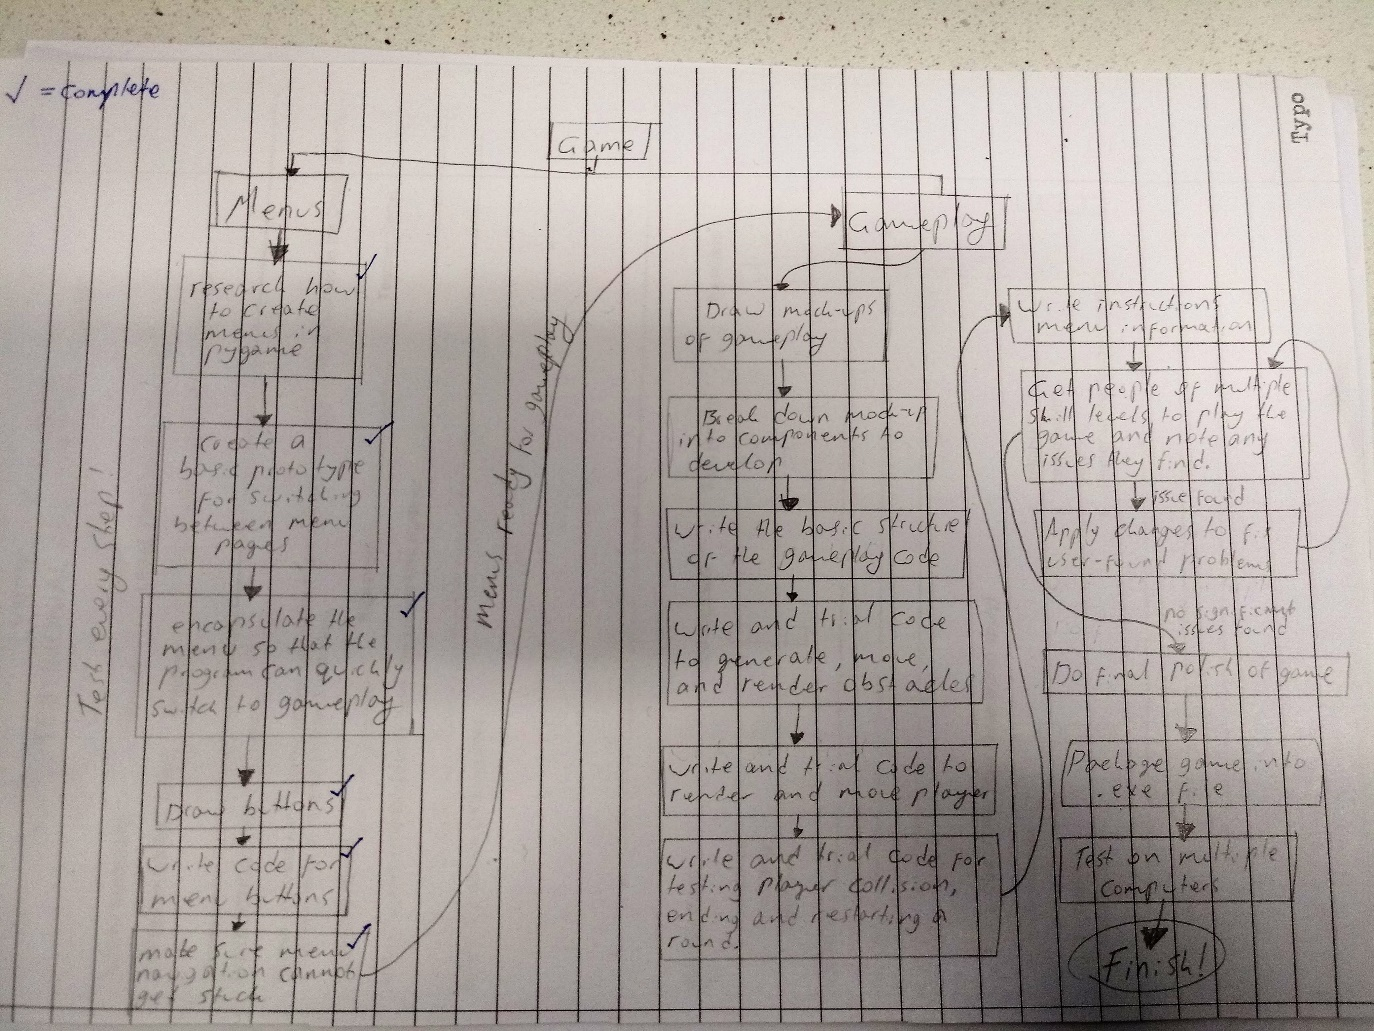 ✓ = complete
Typo
Game
Menus
research how
to create
menus in
pygame
create a
basic prototype
for switching
between menu
pages
encapsulate the
menu so that the
program can quickly
switch to gameplay
Draw buttons
write code for
menu buttons
make sure menu
navigation cannot
get stuck
Test every step!
Menus ready for gameplay
Gameplay
Draw mock-ups
of gameplay
Break down mock-up
into components to
develop
Write the basic structure
of the gameplay code
Write and trial code
to generate, move,
and render obstacles
Write and trial code to
render and move player
Write and trial code for
testing player collision,
ending and restarting a
round.
Write instructions
menu information
Get people of multiple
skill levels to play the
game and note any
issues they find.
issue found
Apply changes to fix
user-found problems
no significant
issues found
Do final polish of game
Package game into
.exe file
Test on multiple
computers
Finish!